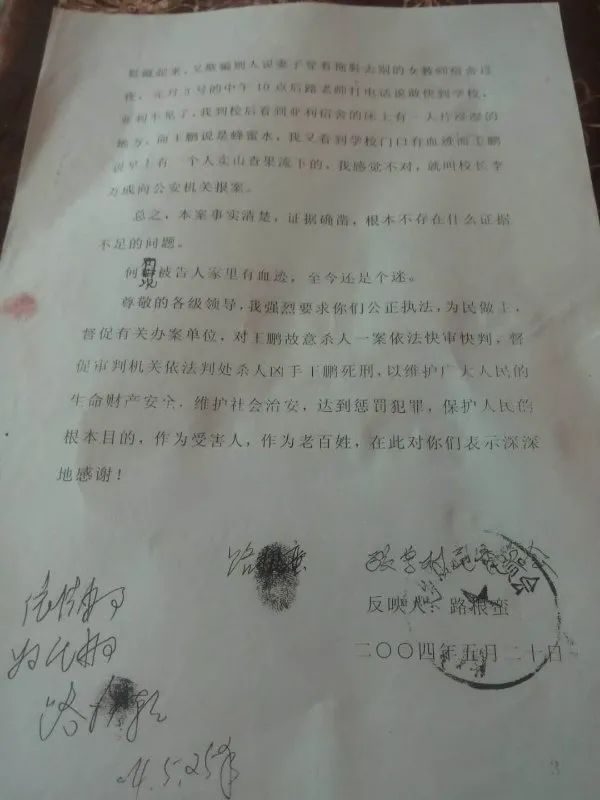 起来，又欺骗别人说妻子穿着拖鞋去别的女教师宿舍过
夜，元月3号的中午10点后路老师打电话说敢快到学校，
亚利不见了，我到校后看到亚利宿舍的床上有一人片湿湿的
地方，而王鹏说是蜂蜜水，我又看到学校门口有血迹而王鹏
说早上有一个人卖山查果流下的，我感觉不对，就叫校长李
万成向公安机关报案。
总之，本案事实清楚，证据确凿，根本不存在什么证据
不足的问题。
何况被告人家里有血迹，至今还是个迷。
尊敬的各级领导，我强烈要求你们公正执法，为民做主，
督促有关办案单位，对王鹏故意杀人一案依法快审快判，督
促审判机关依法判处杀人凶手王鹏死刑，以维护广大人民的
生命财产安全，维护社会治安，达到惩罚犯罪，保护人民的
根本目的，作为受害人，作为老百姓，在此对你们表示深深
地感谢！
路
反映人：路根蛮
二〇〇四年五月二十日
路
04.5.25
3